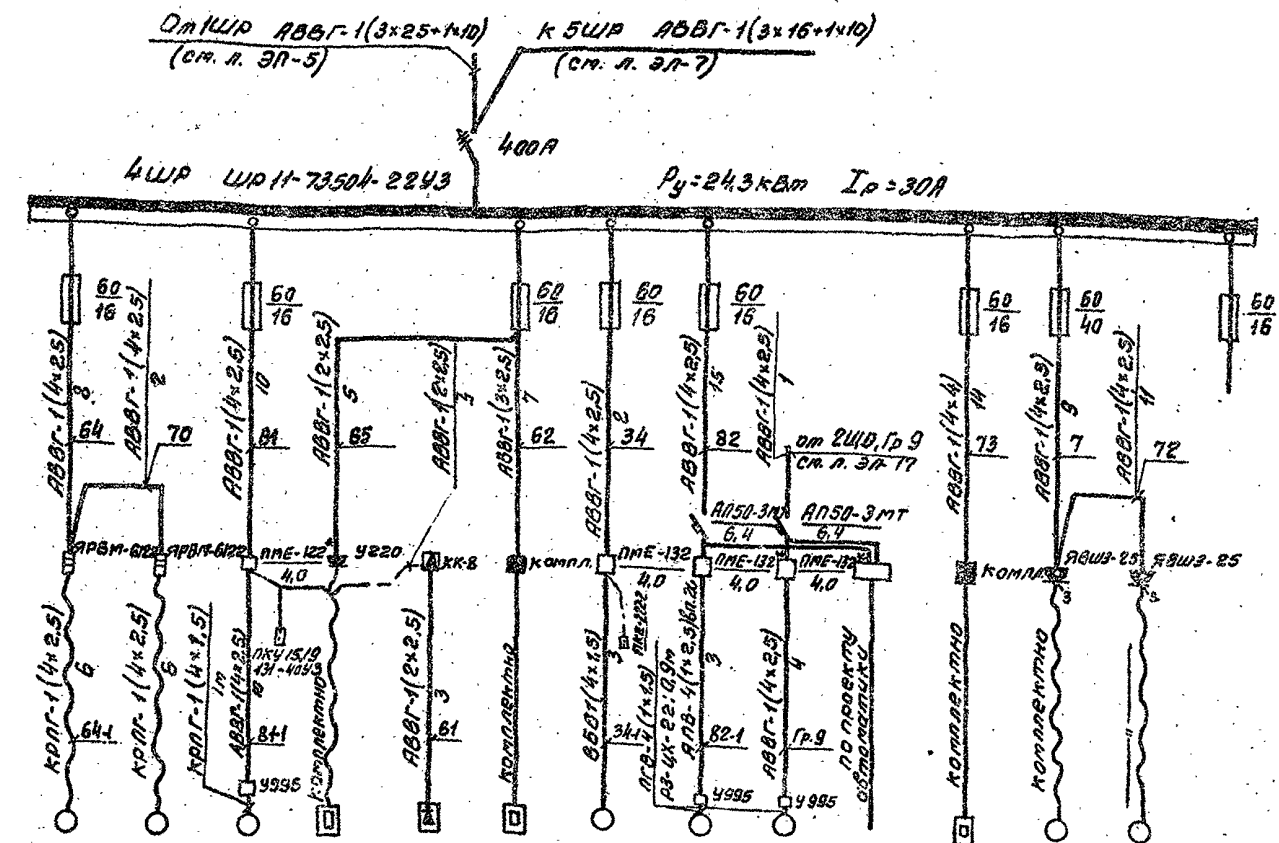 От 1ШР АВВГ-1(3×25+1×10)
(см. л. ЭЛ-5)
К 5ШР АВВГ-1(3×16+1×10)
(см. л. ЭЛ-7)
400А
4ШР ШР11-73504-22У3
Ру=24,3кВт Iр=30А
60
16
60
16
60
16
60
16
60
16
60
16
60
40
60
16
АВВГ-1(4×2,5)
8
64
АВВГ-1(4×2,5)
2
70
АВВГ-1(4×2,5)
10
81
АВВГ-1(2×2,5)
5
65
АВВГ-1(2×2,5)
5
АВВГ-1(3×2,5)
7
62
АВВГ-1(4×2,5)
2
34
АВВГ-1(4×2,5)
15
82
АВВГ-1(4×2,5)
1
от 2ЩО, Гр.9
см. л. ЭЛ-17
АВВГ-1(4×4)
14
73
АВВГ-1(4×2,5)
9
7
АВВГ-1(4×2,5)
4
72
АП50-3мт
6,4
АП50-3МТ
6,4
ЯРВМ-6122
ЯРВМ-6122
ПМЕ-122
4,0
У220
КК-8
компл.
ПМЕ-132
4,0
ПМЕ-132
4,0
ПМЕ-132
4,0
компл.
ЯВШ3-25
3
ЯВШ3-25
3
КРПГ-1(4×2,5)
6
64-1
КРПГ-1(4×2,5)
6
КРПГ-1(4×1,5)
1м
АВВГ-1(4×2,5)
81-1
ПКУ 15.19
131-40У3
комплектно
АВВГ-1(2×2,5)
3
61
комплектно
ВБВ1(4×1,5)
3
34-1
ПКЕ-222
ПГВ-4(1×1,5)
РЗ-ЦХ-22:0,9м
АПВ-4(1×2,5)
3
82-1
АВВГ-1(4×2,5)
4
Гр.9
по проекту
автоматики
комплектно
комплектно
—"—
У995
У995
У995